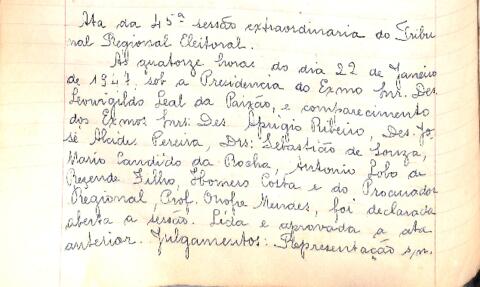 Ata da 45ª sessão extraordinaria do Tribu
nal Regional Eleitoral.
Ás quatorze horas do dia 22 de Janeiro
de 1947, sob a Presidencia do Exmo Snr. Des.
Leovigildo Leal da Paixão, e comparecimento
dos Exmos Snrs: Des. Aprigio Ribeiro, Des. Jo
sé Alcides Pereira, Drs: Sebastião de Souza,
Mario Candido da Rocha, Antonio Lobo de
Rezende Filho, Homero Costa e do Procurador
Regional Prof. Onofre Mendes, foi declarada
aberta a sessão. Lida e aprovada a ata
anterior. Julgamentos: Representação s/n.